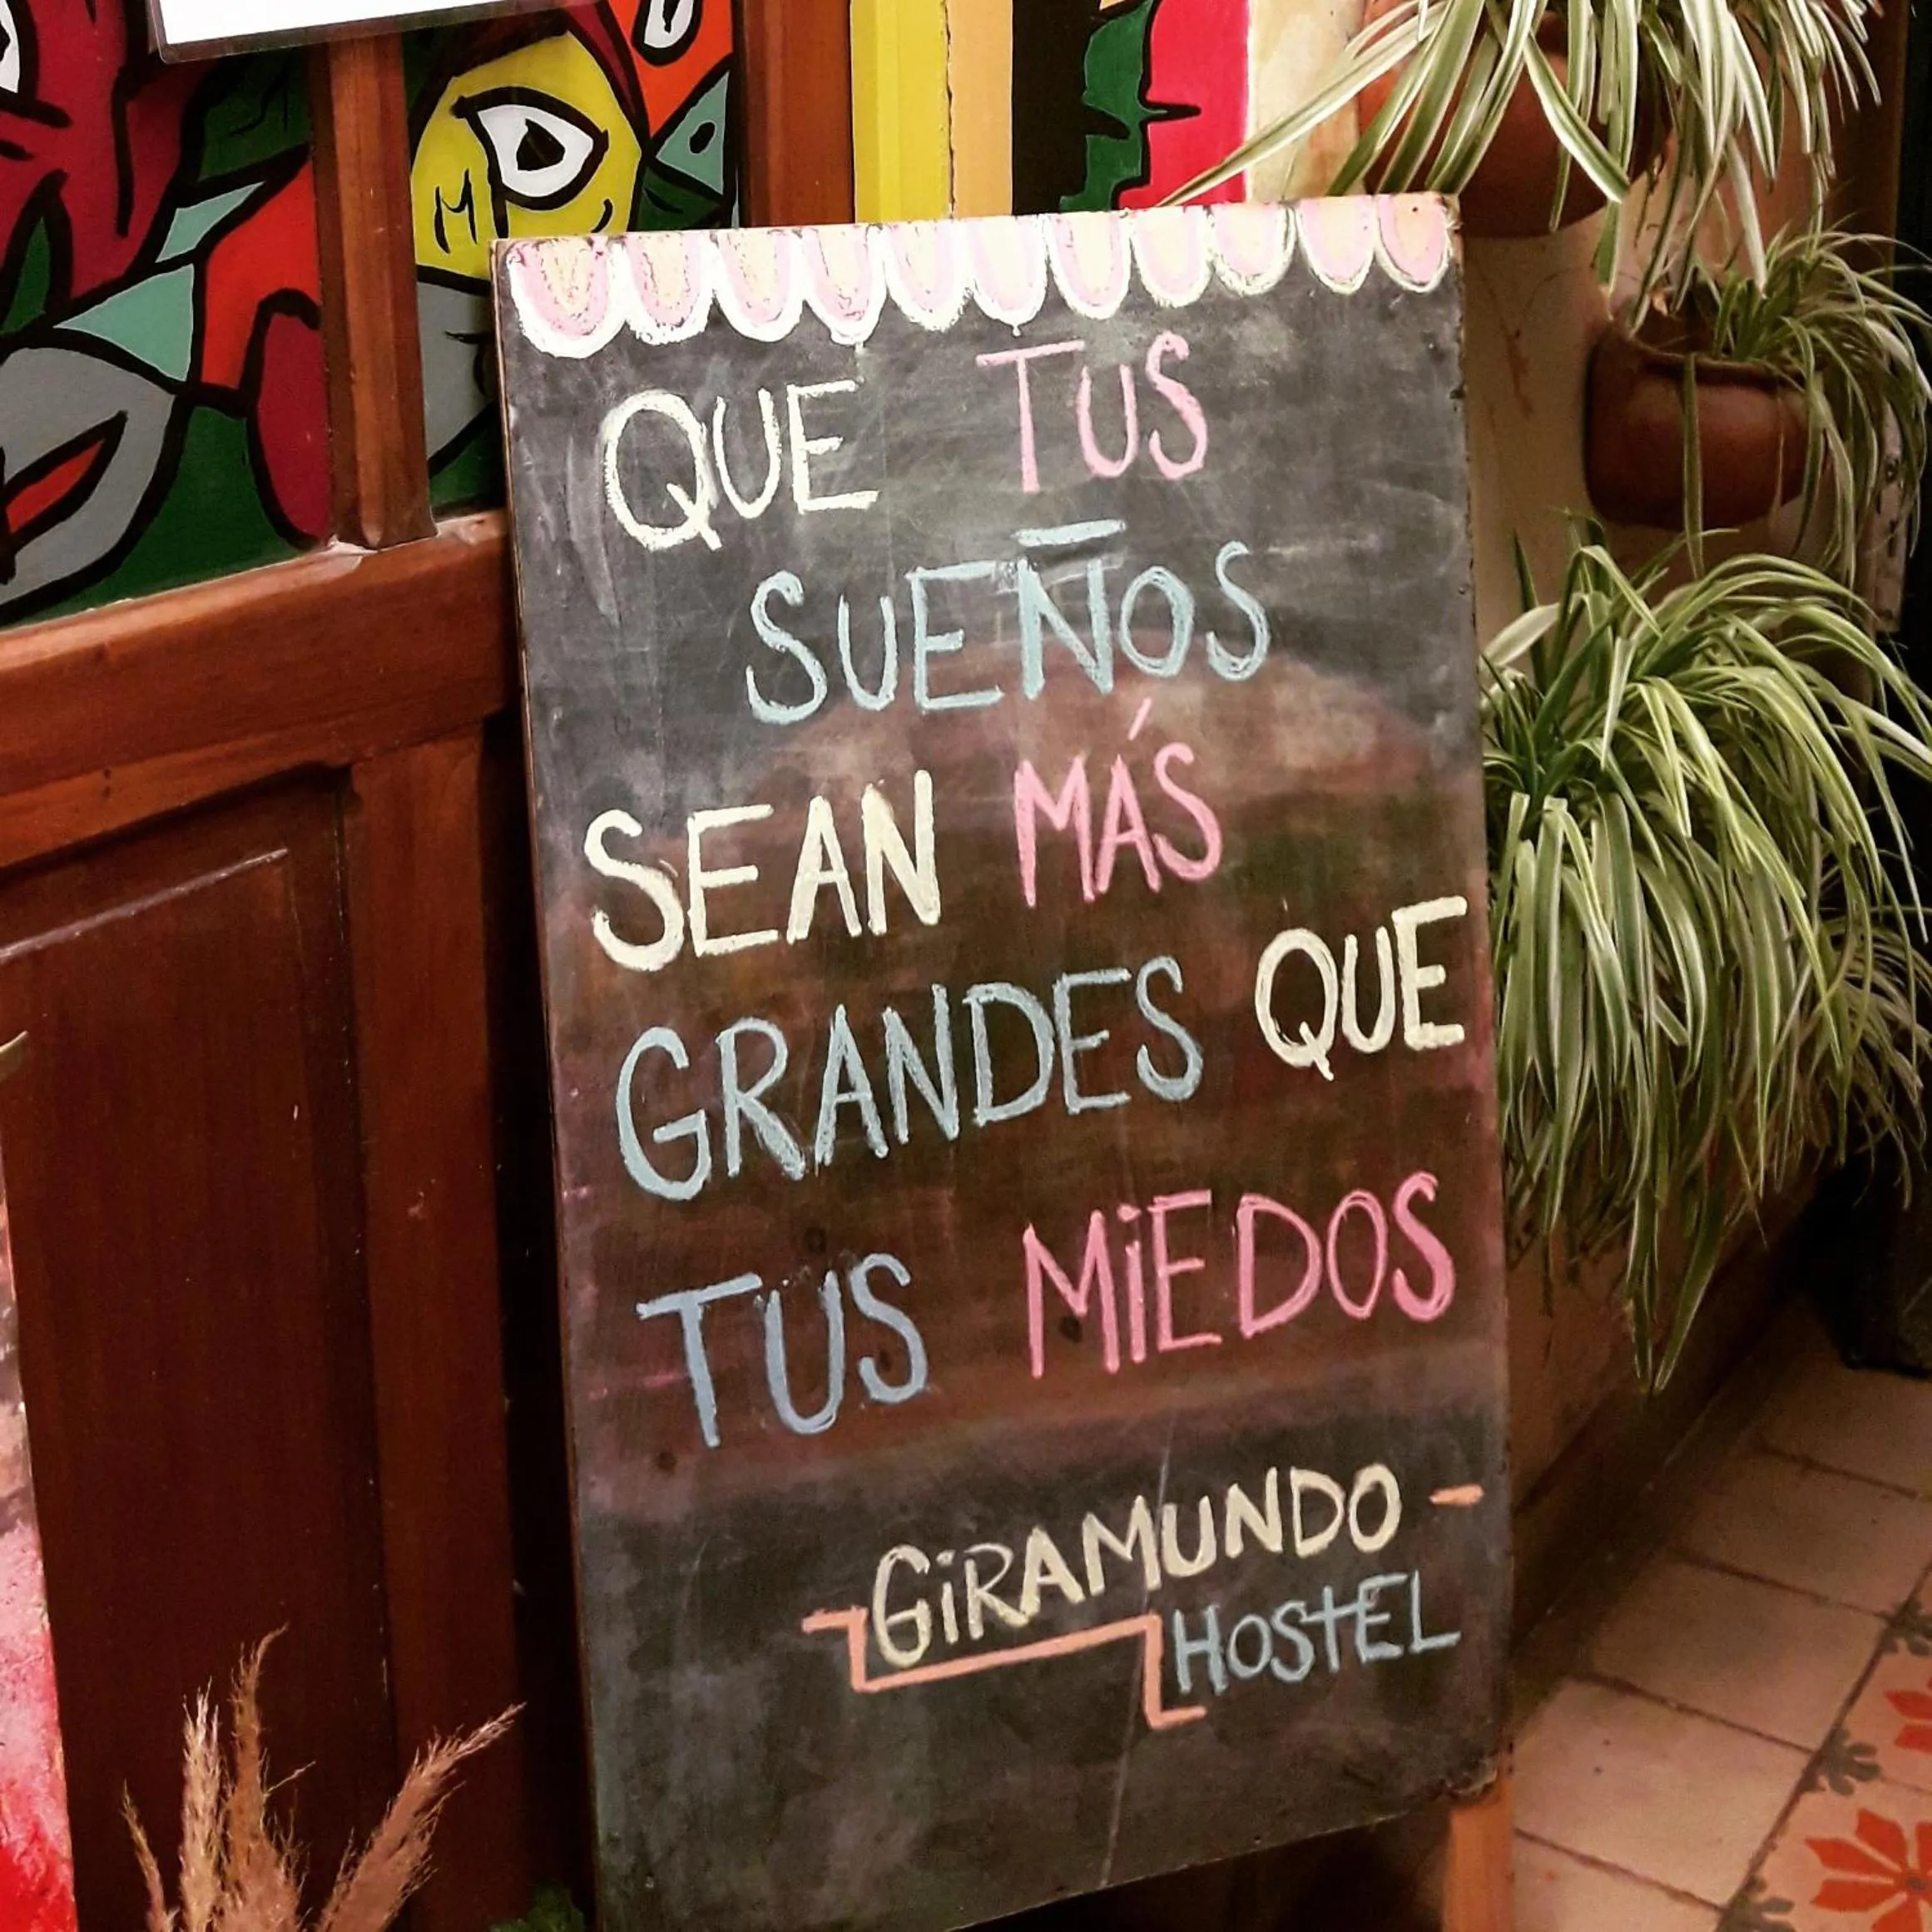 QUE TUS
SUEÑOS
SEAN MÁS
GRANDES QUE
TUS MiEDOS
GiRAMUNDO
HOSTEL